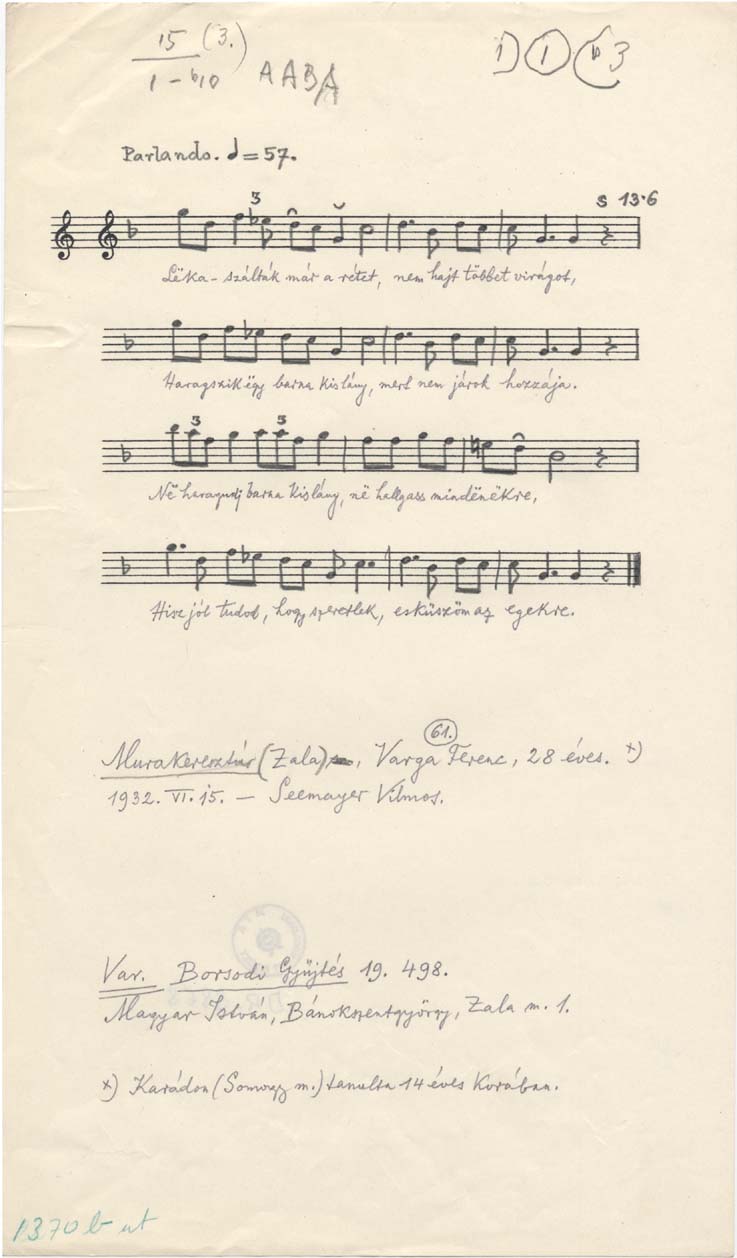 15 (3.)
1 – b10 AABA
1 1 b3
Parlando. = 57.
3
S 13·6
Lëka-szálták már a rétet, nem hajt többet virágot,
Haragszik ëgy barna kislány, mert nem járok hozzája.
3 3
Në haragudj barna kislány, në hallgass mindënëkre,
Hisz jól tudod, hogy szeretlek, esküszöm az egekre.
61.
Murakeresztúr (Zala), Varga Ferenc, 28 éves. x)
1932. VI. 15. — Seemayer Vilmos.
Var. Borsodi Gyüjtés 19. 498.
Magyar István, Bánokszentgyörgy, Zala m. 1.
x) Karádon (Somogy m.) tanulta 14 éves korában.
1370 b